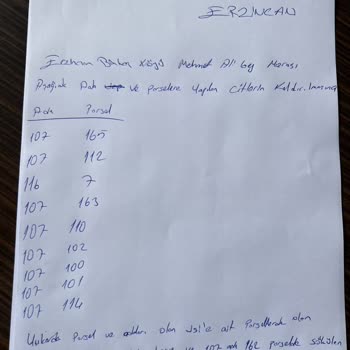 ERZINCAN
Mehmet Ali bey Merası
Aşağıda Ada ve Parsellere Yapılan Citlerin Kaldırılmasına
Ada Parsel
107 165
107 112
116 7
107 163
107 110
107 102
107 100
107 101
107 114
Yukarıda Parsel ve adaları olan ait Parsellerde olan
ve 107 ada 162 parselde sökülen